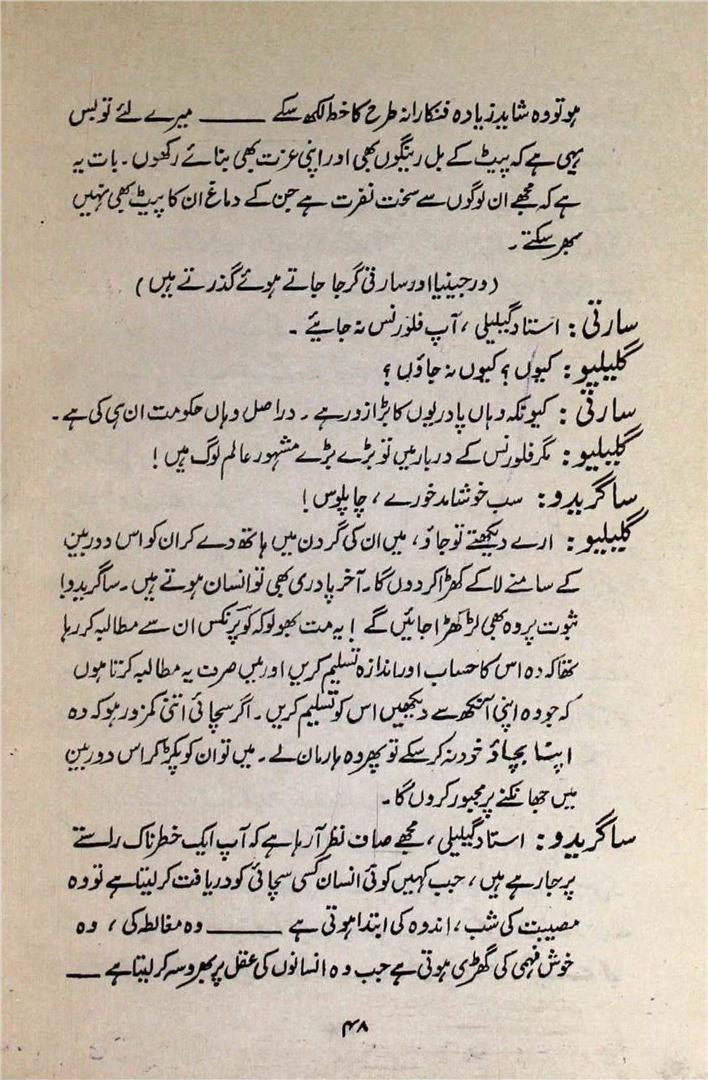 ہو تو وہ شاید زیادہ فنکارانہ طرح کا خط لکھ سکے ــــــــ میرے لئے تو بس
یہی ہے کہ پیٹ کے بل رینگوں بھی اور اپنی عزت بھی بنائے رکھوں۔ بات یہ
ہے کہ مجھے ان لوگوں سے سخت نفرت ہے جن کے دماغ ان کا پیٹ بھی نہیں
بھر سکتے۔
(ورجینیا اور سارتی گرجا جاتے ہوئے گذرتے ہیں)
سارتی: استاد گیلیلی، آپ فلورنس نہ جائیے۔
گلیلیو: کیوں؟ کیوں نہ جاؤں؟
سارتی: کیونکہ وہاں پادریوں کا بڑا زور ہے۔ دراصل وہاں حکومت ان ہی کی ہے۔
گلیلیو: مگر فلورنس کے دربار میں تو بڑے بڑے مشہور عالم لوگ ہیں!
ساگریدو: سب خوشامد خورے، چاپلوس!
گلیلیو: ارے دیکھتے تو جاؤ، میں ان کی گردن میں ہاتھ دے کر ان کو اس دوربین
کے سامنے لا کے کھڑا کر دوں گا۔ آخر پادری بھی تو انسان ہوتے ہیں۔ ساگریدو!
ثبوت پر وہ بھی لڑکھڑا جائیں گے! یہ مت بھولو کہ کوپرنکس ان سے مطالبہ کر رہا
تھا کہ وہ اس کا حساب اور اندازہ تسلیم کریں اور میں صرف یہ مطالبہ کرتا ہوں
کہ جو وہ اپنی آنکھ سے دیکھیں اس کو تسلیم کریں۔ اگر سچائی اتنی کمزور ہو کہ وہ
اپنا بچاؤ خود نہ کر سکے تو پھر وہ ہار مان لے۔ میں تو ان کو پکڑ کر اس دوربین
میں جھانکنے پر مجبور کروں گا۔
ساگریدو: استاد گیلیلی، مجھے صاف نظر آ رہا ہے کہ آپ ایک خطرناک راستے
پر جا رہے ہیں، جب کہیں کوئی انسان کسی سچائی کو دریافت کر لیتا ہے تو وہ
مصیبت کی شب، اندوہ کی ابتدا ہوتی ہے ــــــــ وہ مغالطہ کی، وہ
خوش فہمی کی گھڑی ہوتی ہے جب وہ انسانوں کی عقل پر بھروسہ کر لیتا ہے ــــ
۴۸